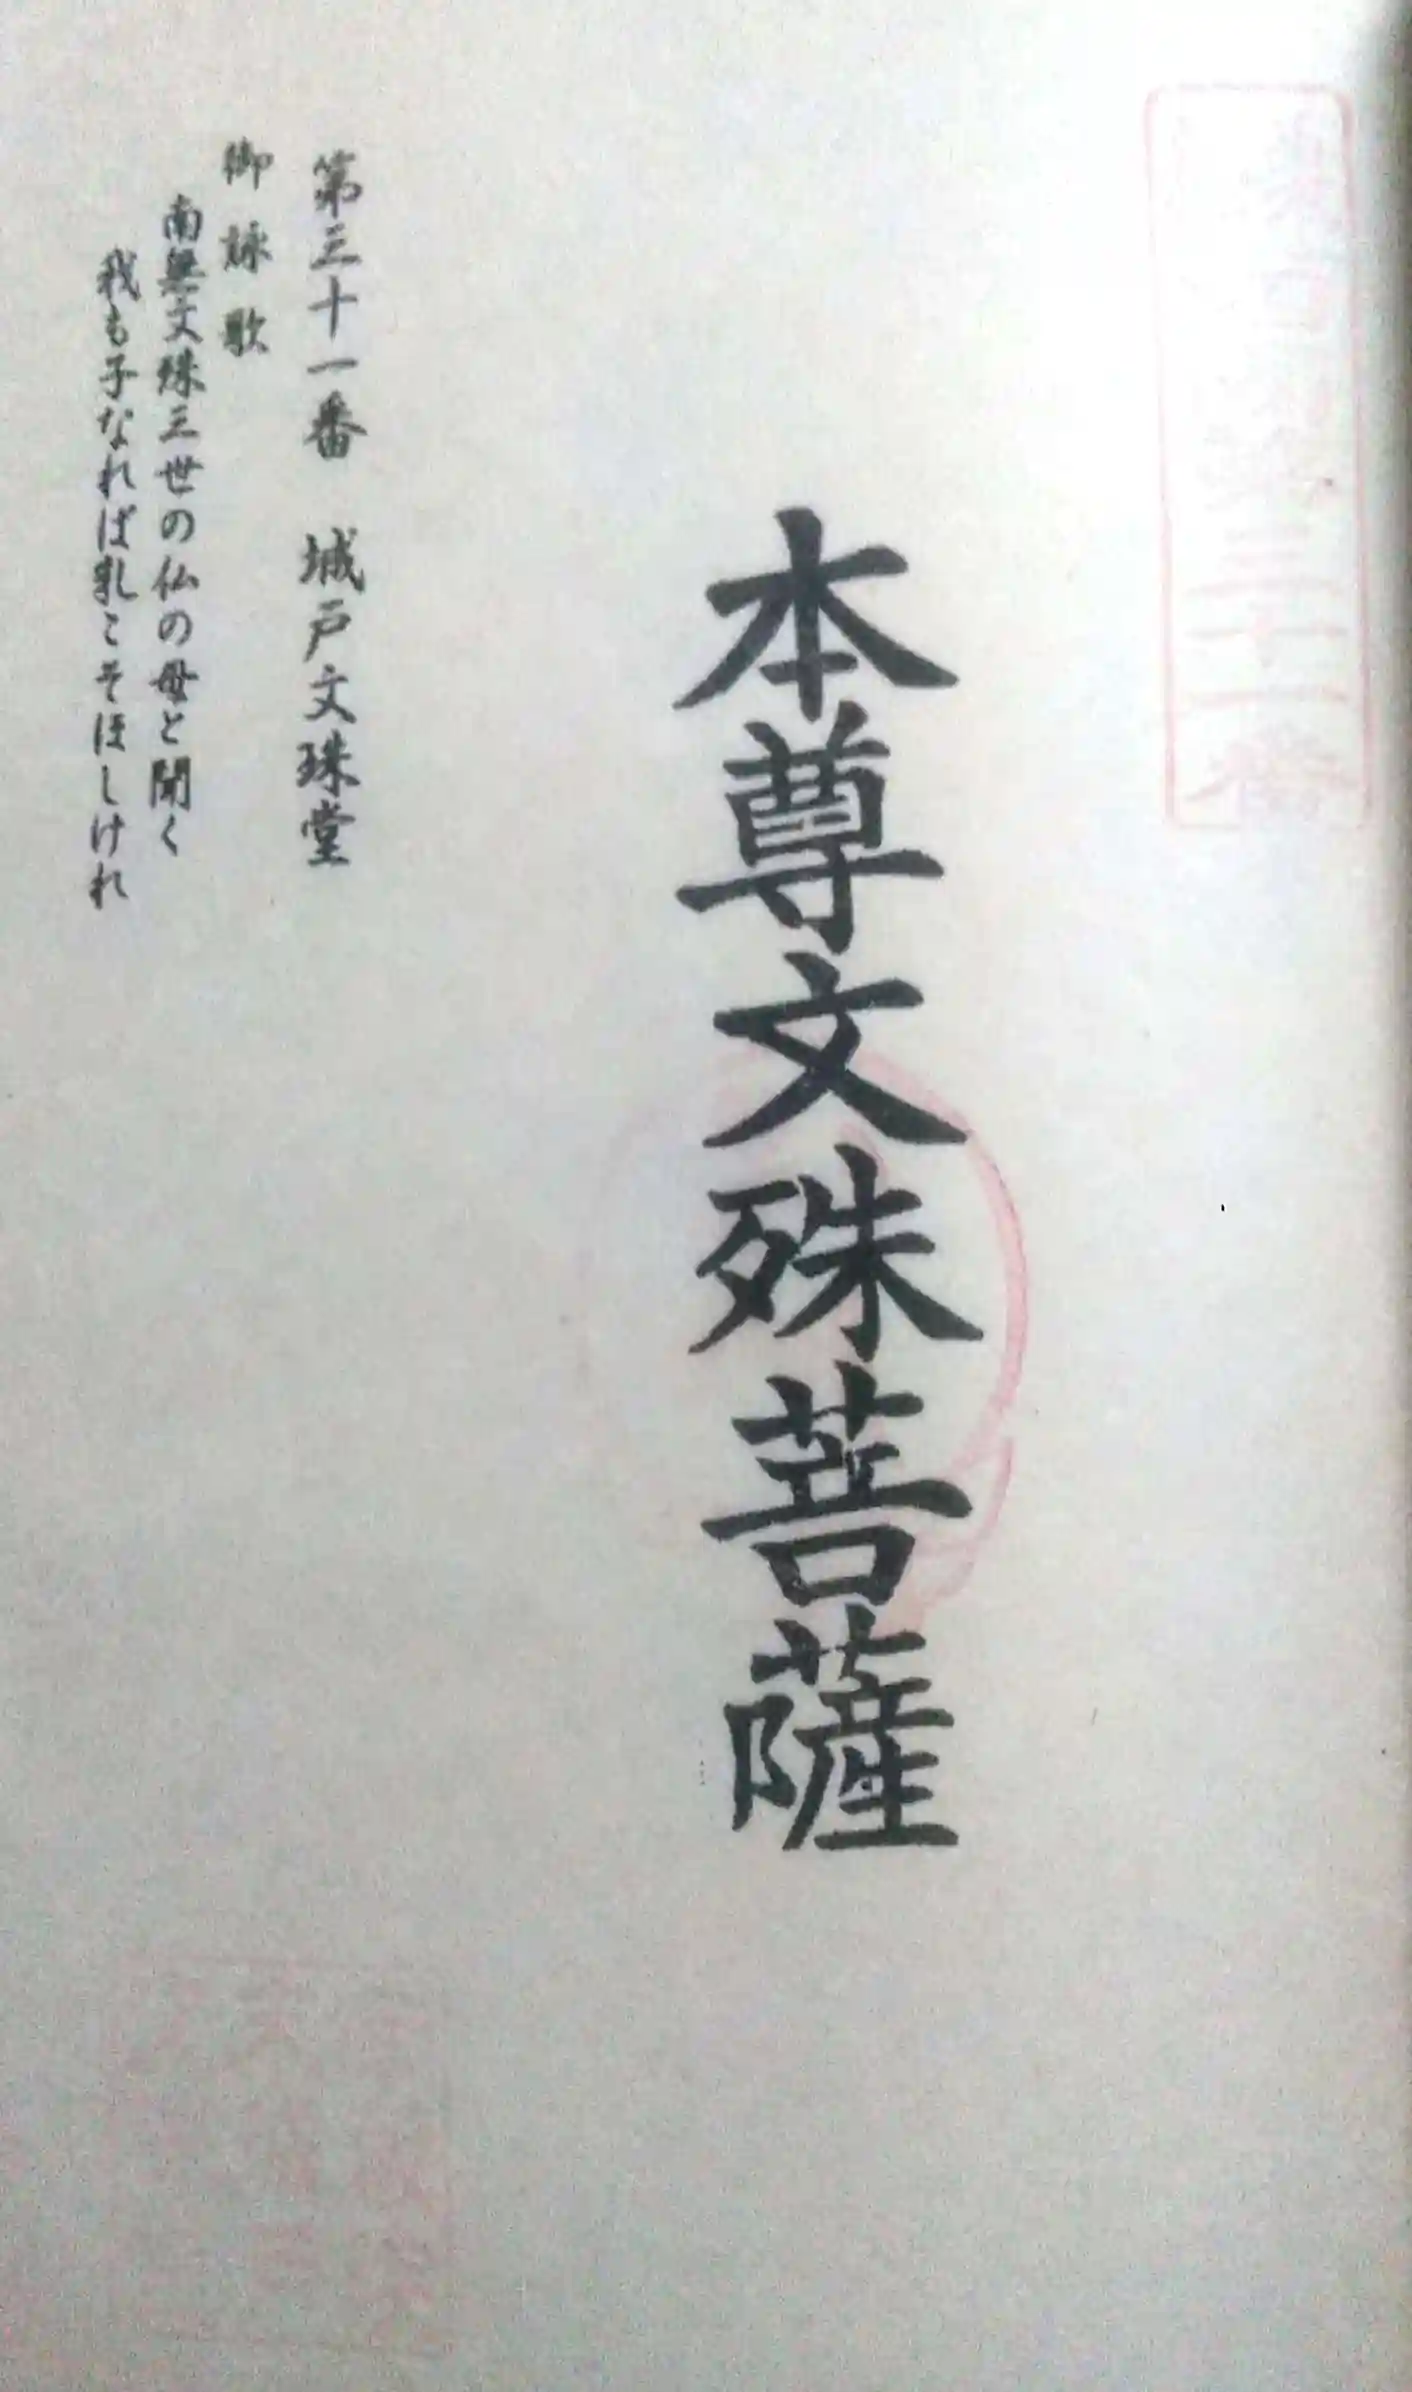 本尊文殊菩薩
第三十一番 城戸文珠堂
御詠歌
南無文殊三世の仏の母と聞く
我も子なれば乳こそほしけれ